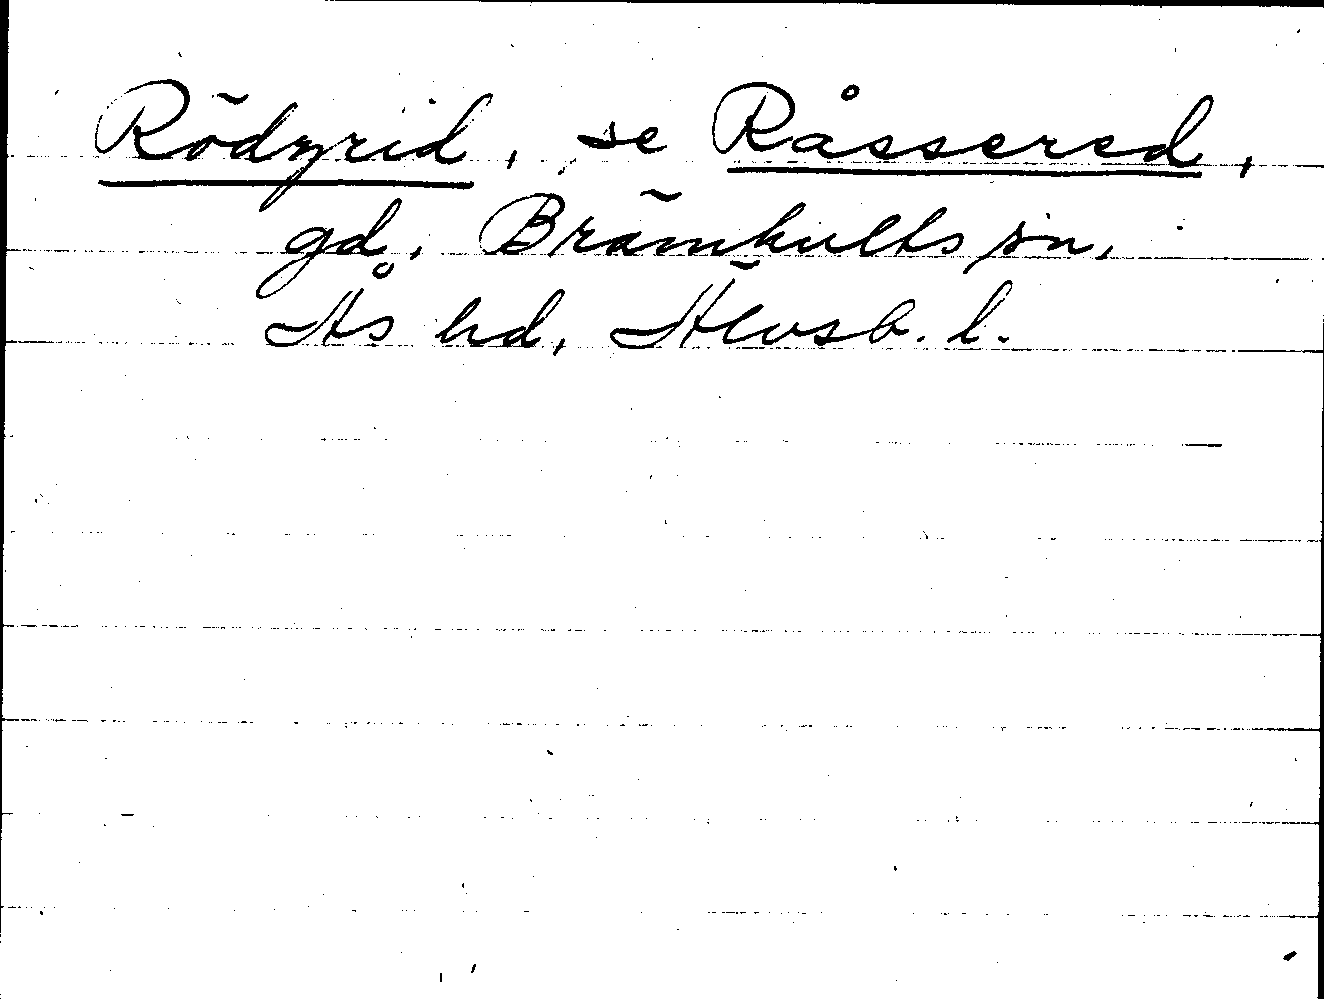 Rödzrid, se Råssered,
gd, Brämhults sn,
Ås hd, Älvsb. l.